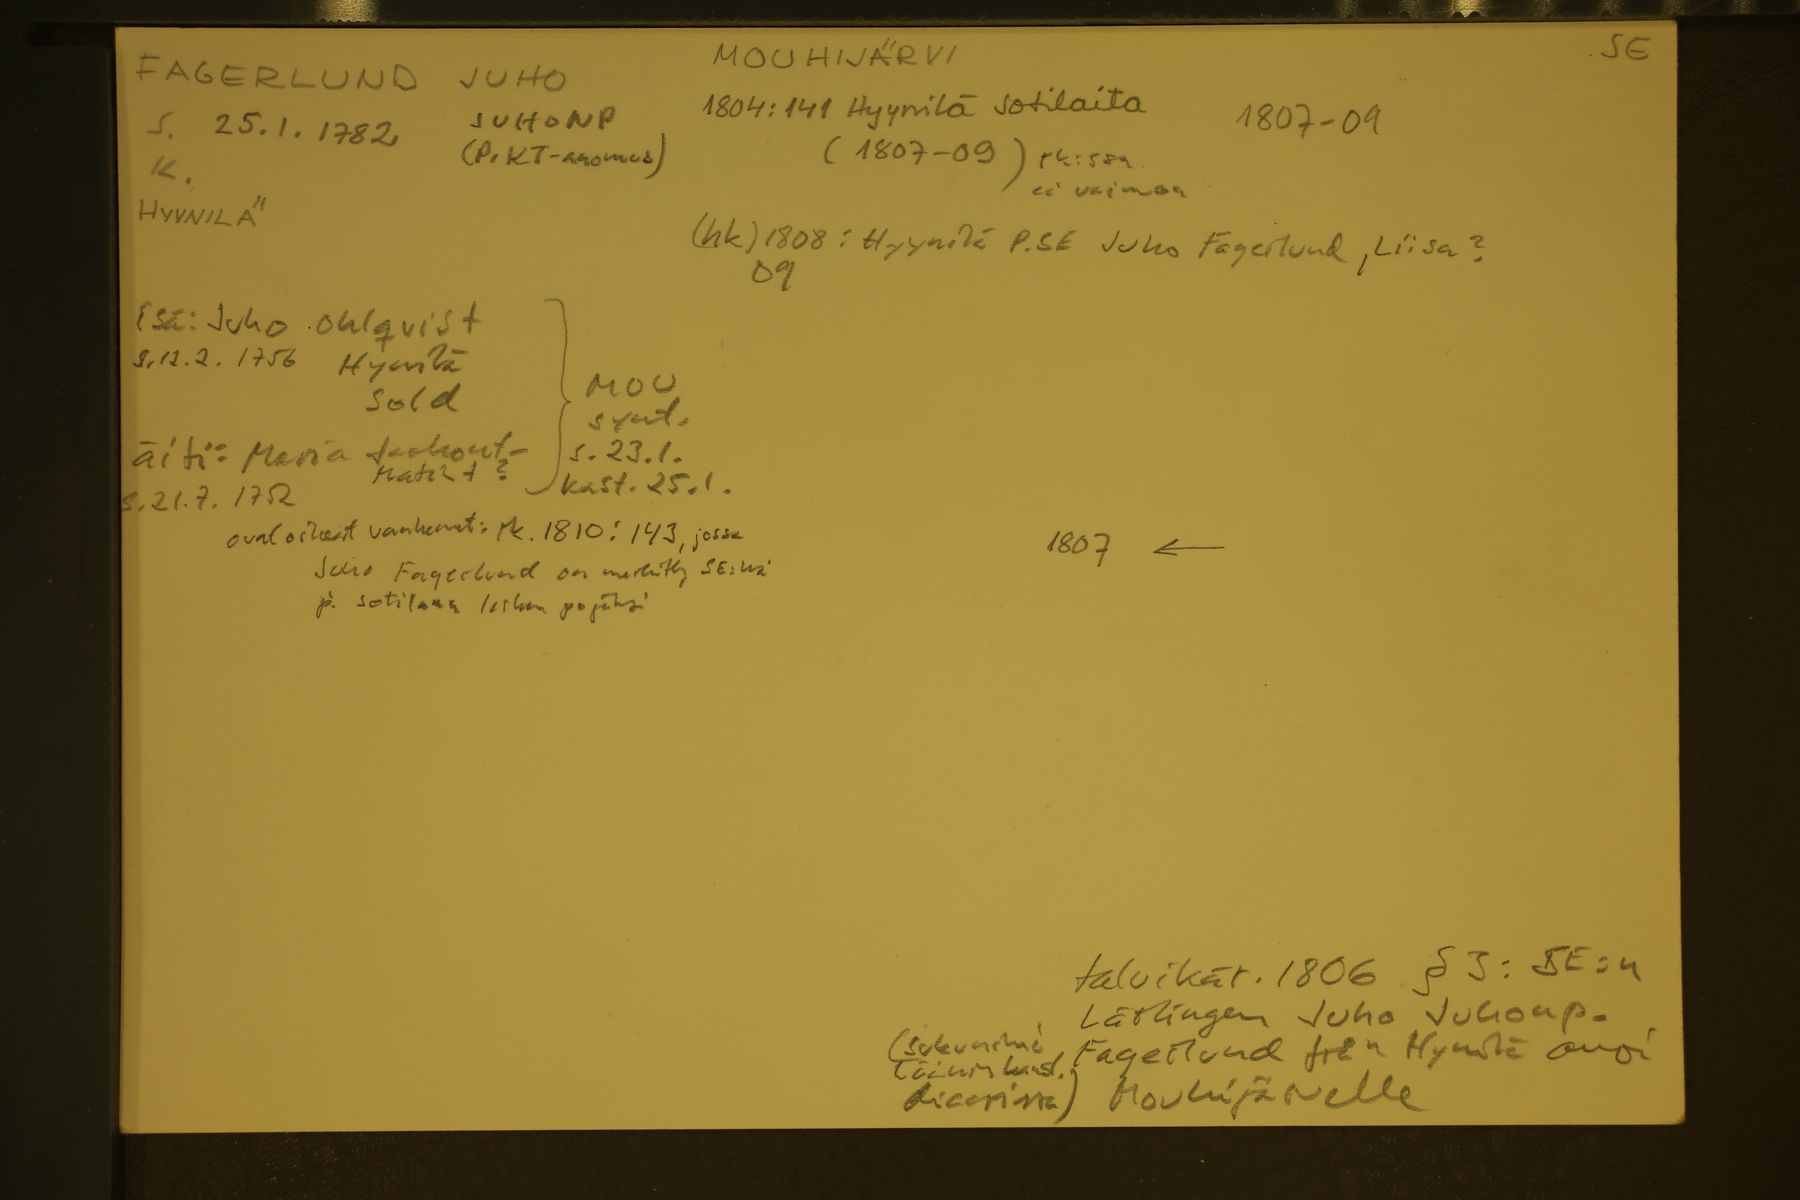 FAGERLUND JUHO
S. 25.1.1782
JUHONP
(P.KT-anomus)
K.
HYYNILÄ
MOUHIJÄRVI
SE
1804:141 Hyynilä sotilaita
1807-09
(1807-09) rk:ssa
ei vaimoa
(hk) 1808: Hyynilä P.SE Juho Fagerlund, Liisa?
09
Isä: Juho Ohlqvist
s.12.2. 1756 Hynilä
Sold
äiti: Maria Jaakont-
Matint?
s.21.7. 1752
MOU
synt.
s. 23.1.
kast. 25.1.
ovat oikeat vanhemmat: rk. 1810: 143, jossa
Juho Fagerlund on merkitty SE:ksi
ja sotilaan lesken pojaksi
1807 ←
talvikär. 1806 § 3: SE:n
Lärlingen Juho Juhonp.
Fagerlund från Hynilä anoi
Mouhijärvelle
(sukunimi
läänin kunst.
diaarissa)